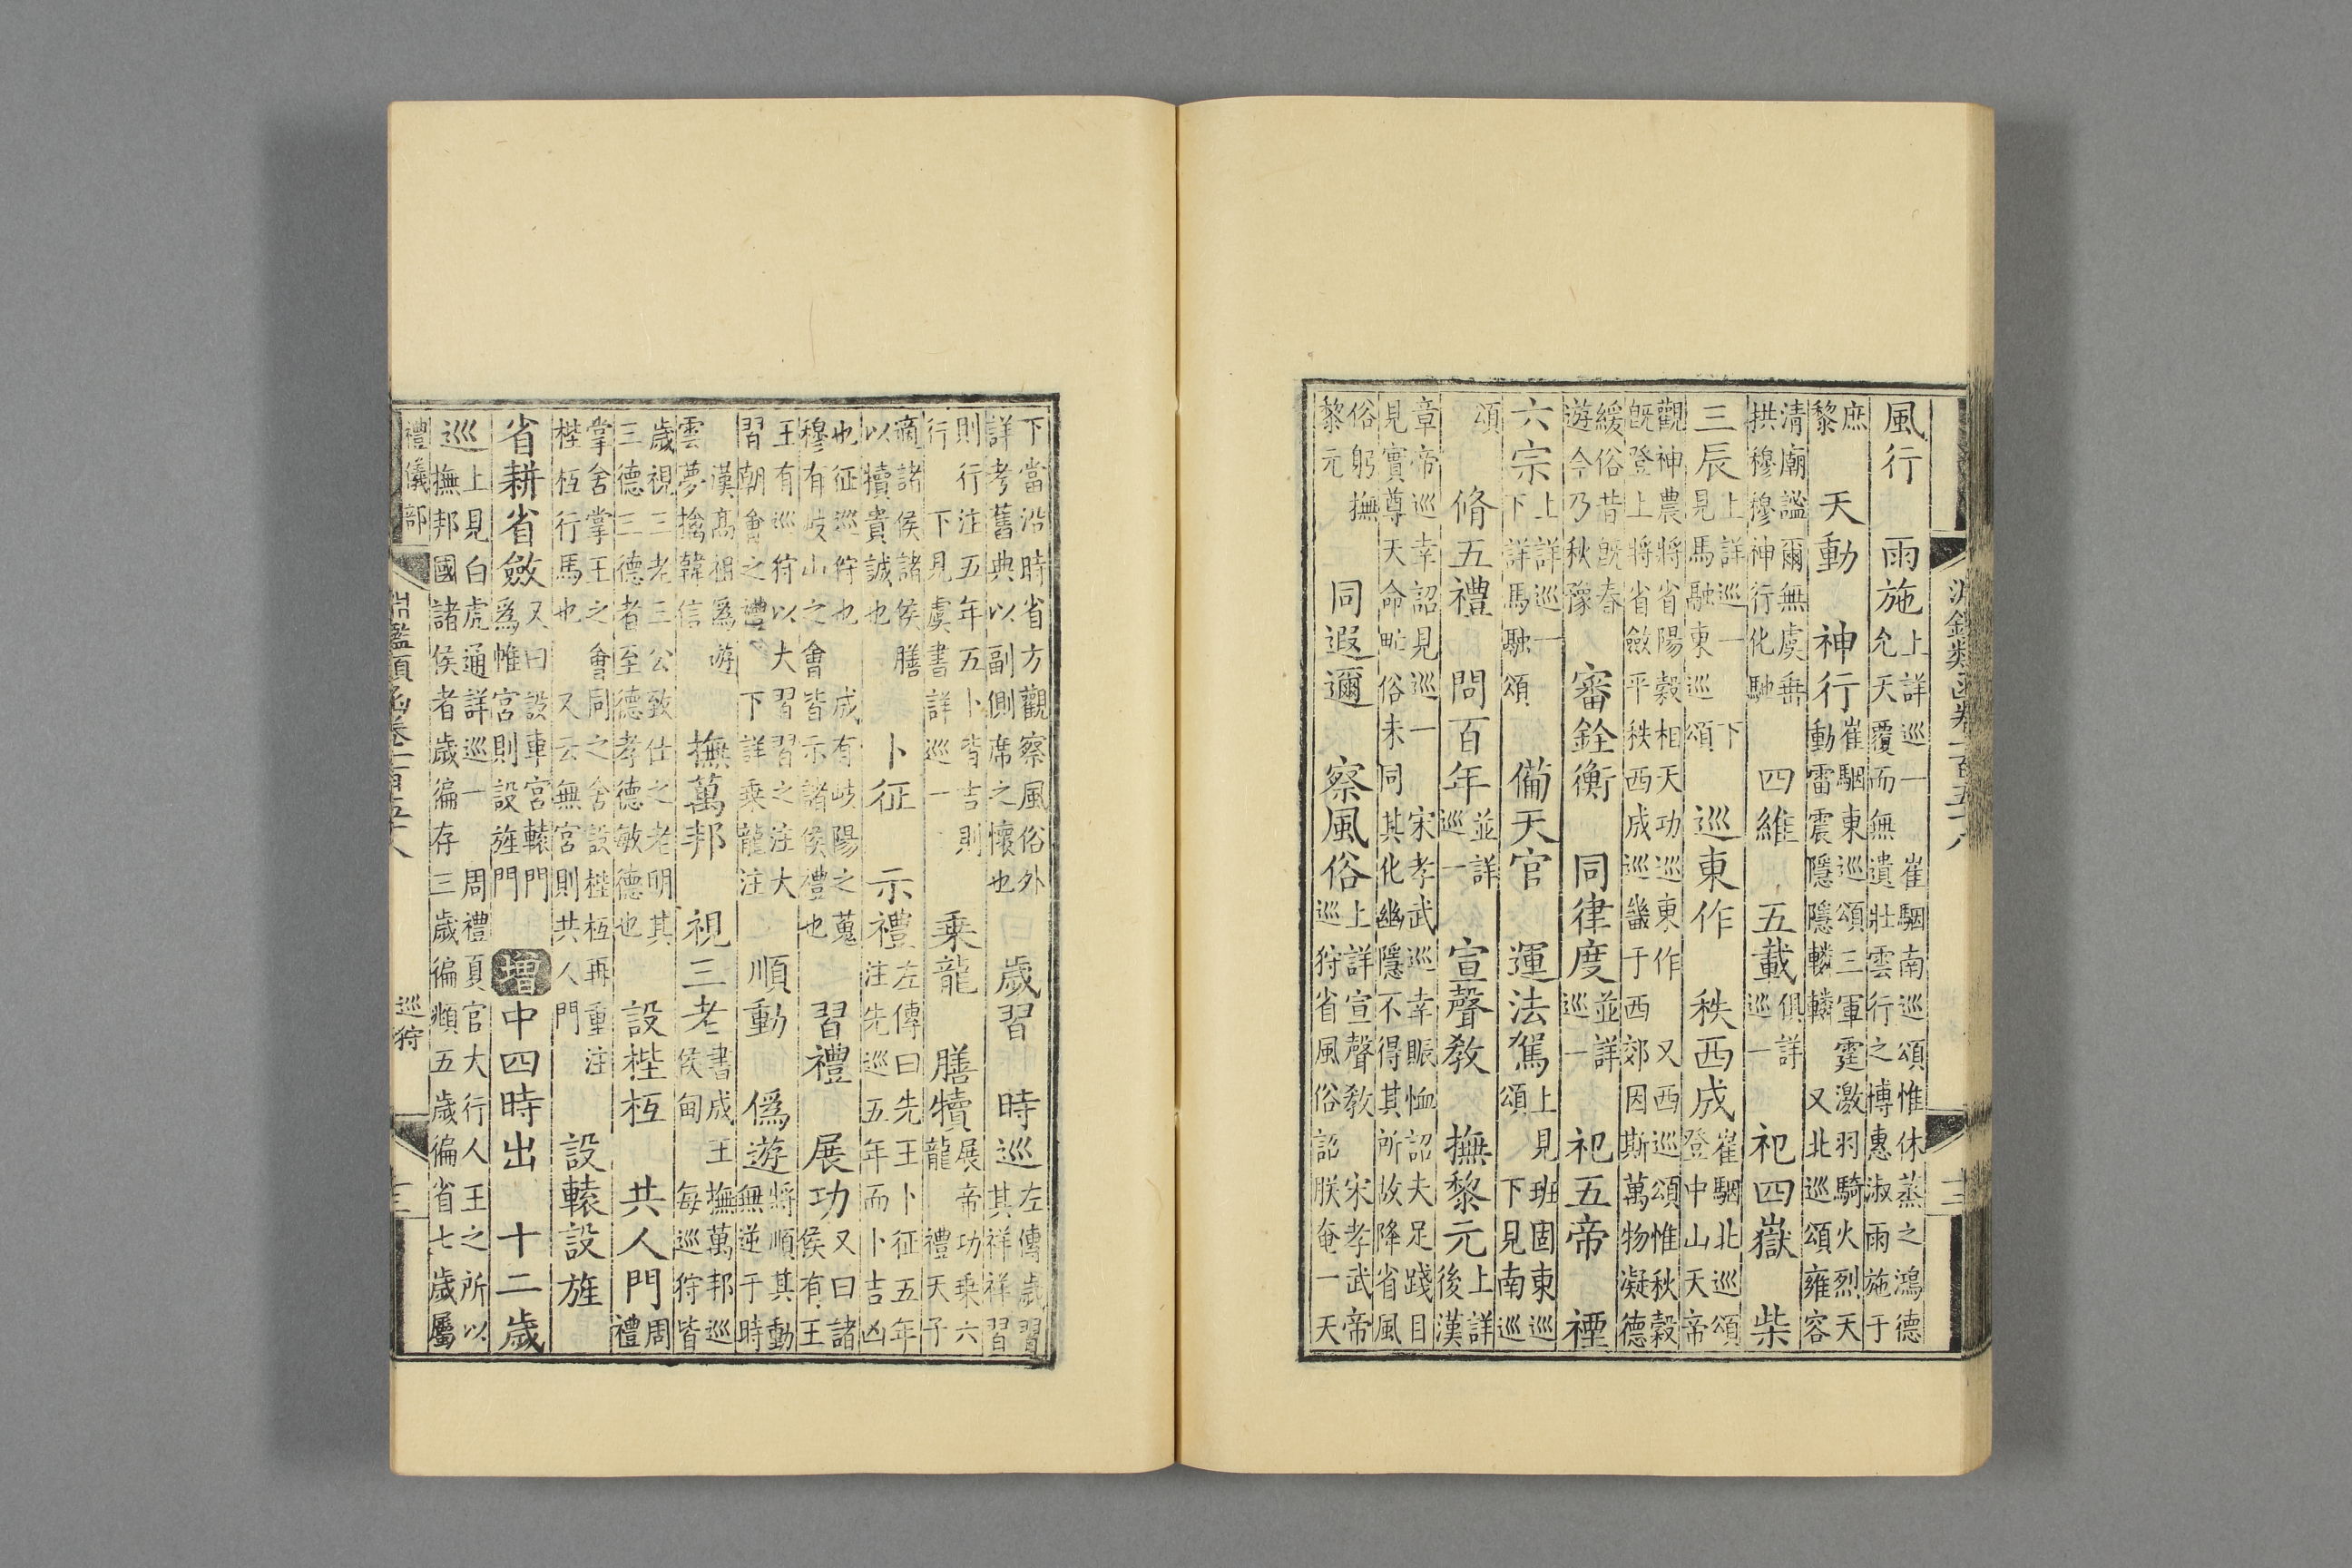 淵鑑類函卷一百五十八
風行　雨施　上詳巡一　崔駰南巡頌惟休蒸之鴻德允天覆而無遺壯雲行之博惠淑雨施于
庶黎　天動　神行　崔駰東巡頌三軍霆激羽騎火烈天動雷震隱隱轔轔　又北巡頌雍容
清廟謐爾無虞垂拱穆穆神行化馳　四維　五載　俱詳巡一　祀四嶽　柴
三辰　上詳巡一　下見馬融東巡頌　巡東作　秩西成　崔駰北巡頌登中山天帝
觀神農將省陽穀相天功巡東作　又西巡頌惟秋穀既登上將省斂平秩西成巡畿于西郊因斯萬物凝德
綏俗昔旣春遊今乃秋豫　審銓衡　同律度　並詳巡一　祀五帝　禋
六宗　上詳巡一　下詳馬融頌　備天官　運法駕　上見班固東巡頌　下見南巡
頌　脩五禮　問百年　並詳巡一　宣聲敎　撫黎元　上詳後漢
章帝巡幸詔見巡一　宋孝武巡幸賑恤詔夫足踐目見實尊天命俗未同其化幽隱不得其所故降省風
俗躬撫黎元　同遐邇　察風俗　上詳宣聲敎　宋孝武帝巡狩省風俗詔朕奄一天
下當沿時省方觀察風俗外詳考舊典以副側席之懷也　歲習　時巡　左傳歲習其祥祥習
則行注五年五卜皆吉則行　下見虞書詳巡一　乘龍　膳犢　展帝功乘六龍　禮天子
適諸侯諸侯膳以犢貴誠也　卜征　示禮　左傳曰先王卜征五年注先巡五年而卜吉凶
也征巡狩也　成有岐陽之蒐穆有岐山之會皆示諸侯禮也　習禮　展功　又曰諸侯有王
王有巡狩以大習習之注大習朝會之禮　下詳乘龍注　順動　僞遊　將順其動無逆于時
漢高祖爲遊雲夢擒韓信　撫萬邦　視三老　書成王撫萬邦巡侯甸　每巡狩皆
歲視三老三公致仕之老明其三德三德者至德孝德敏德也　設梐枑　共人門　周禮
掌舍掌王之會同之舍設梐枑再重注梐枑行馬也　又云無宮則共人門　設轅設旌
省耕省斂　又曰設車宮轅門爲帷宮則設旌門　增　中四時出　十二歲
巡　上見白虎通詳巡一　周禮夏官大行人王之所以撫邦國諸侯者歲徧存三歲徧覜五歲徧省七歲屬
禮儀部　淵鑑類函卷一百五十八　巡狩　十三